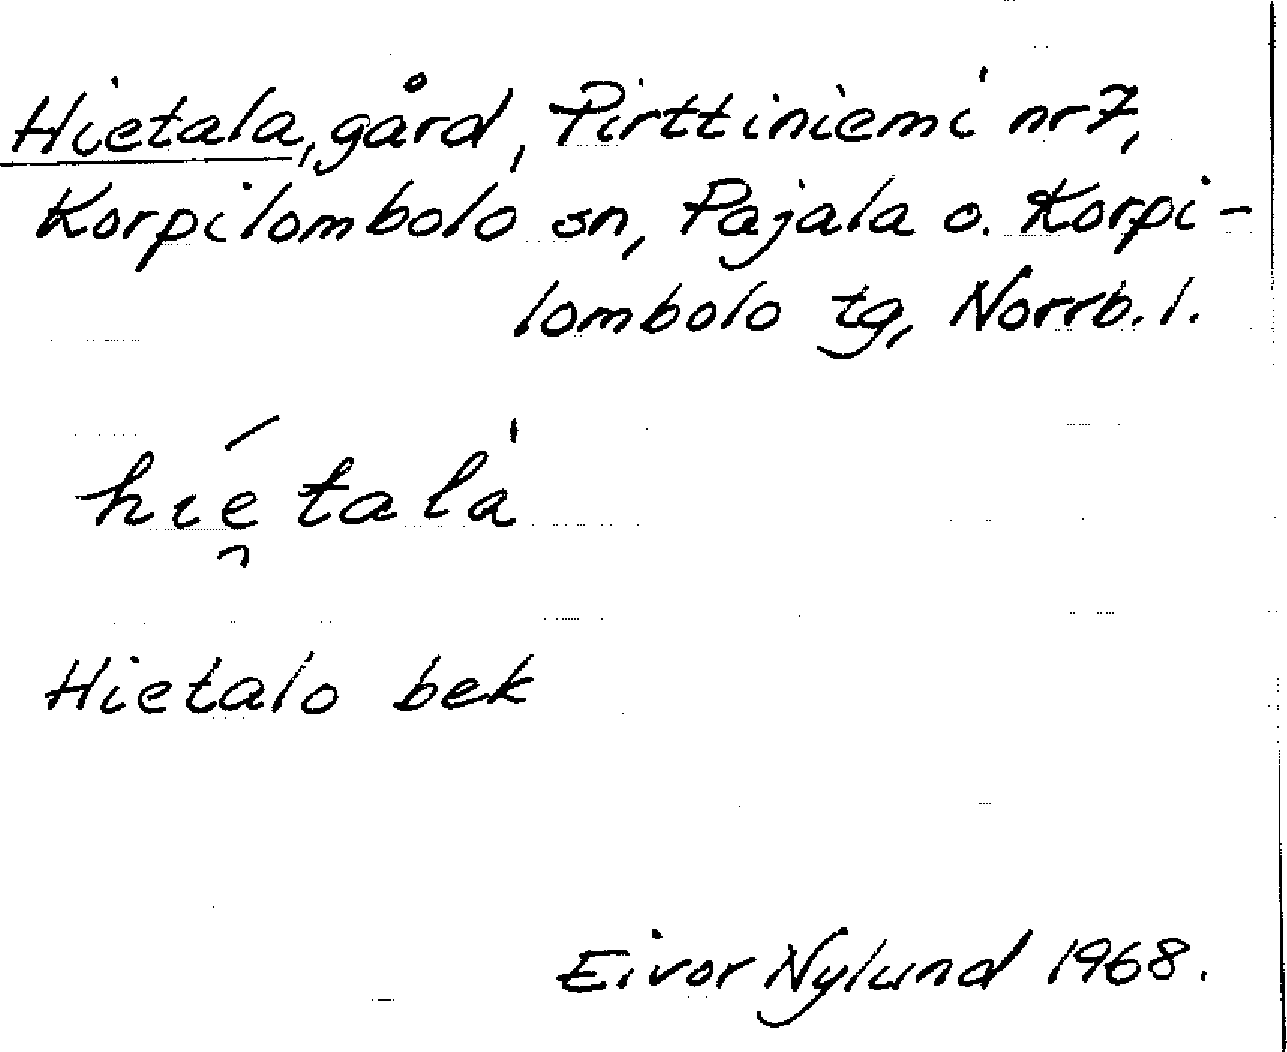 Hietala, gård, Pirttiniemi nr 7,
Korpilombolo sn, Pajala o. Korpi-
lombolo tg, Norrb. l.
hıé̯talà
Hietalo bek
Eivor Nylund 1968.